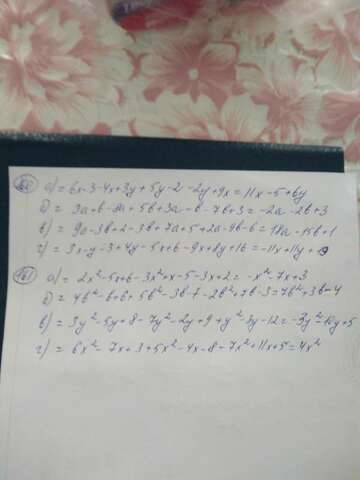 а) = 6x-3-4x+3y+5y-2-2y+9x = 11x-5+6y
б) = 3a+b-8a+5b+3a-b-7b+3 = -2a-2b+3
в) = 9a-3b+2-3b+7a+5+2a-9b-6 = 18a-15b+1
г) = 3x-y-3+4y-5x+6-9x+8y+16 = -11x+11y+
а) = 2x²-5x+6-3x²+x-5-3x+2 = -x²-7x+3
б) = 4b²-b+6+5b²-3b-7-2b²+7b-3 = 7b²+3b-4
в) = 3y²-5y+8-7y²-2y+9+y²-3y-12 = -3y²-10y+5
г) = 6x²-7x+3+5x²-4x-8-7x²+11x+5 = 4x²